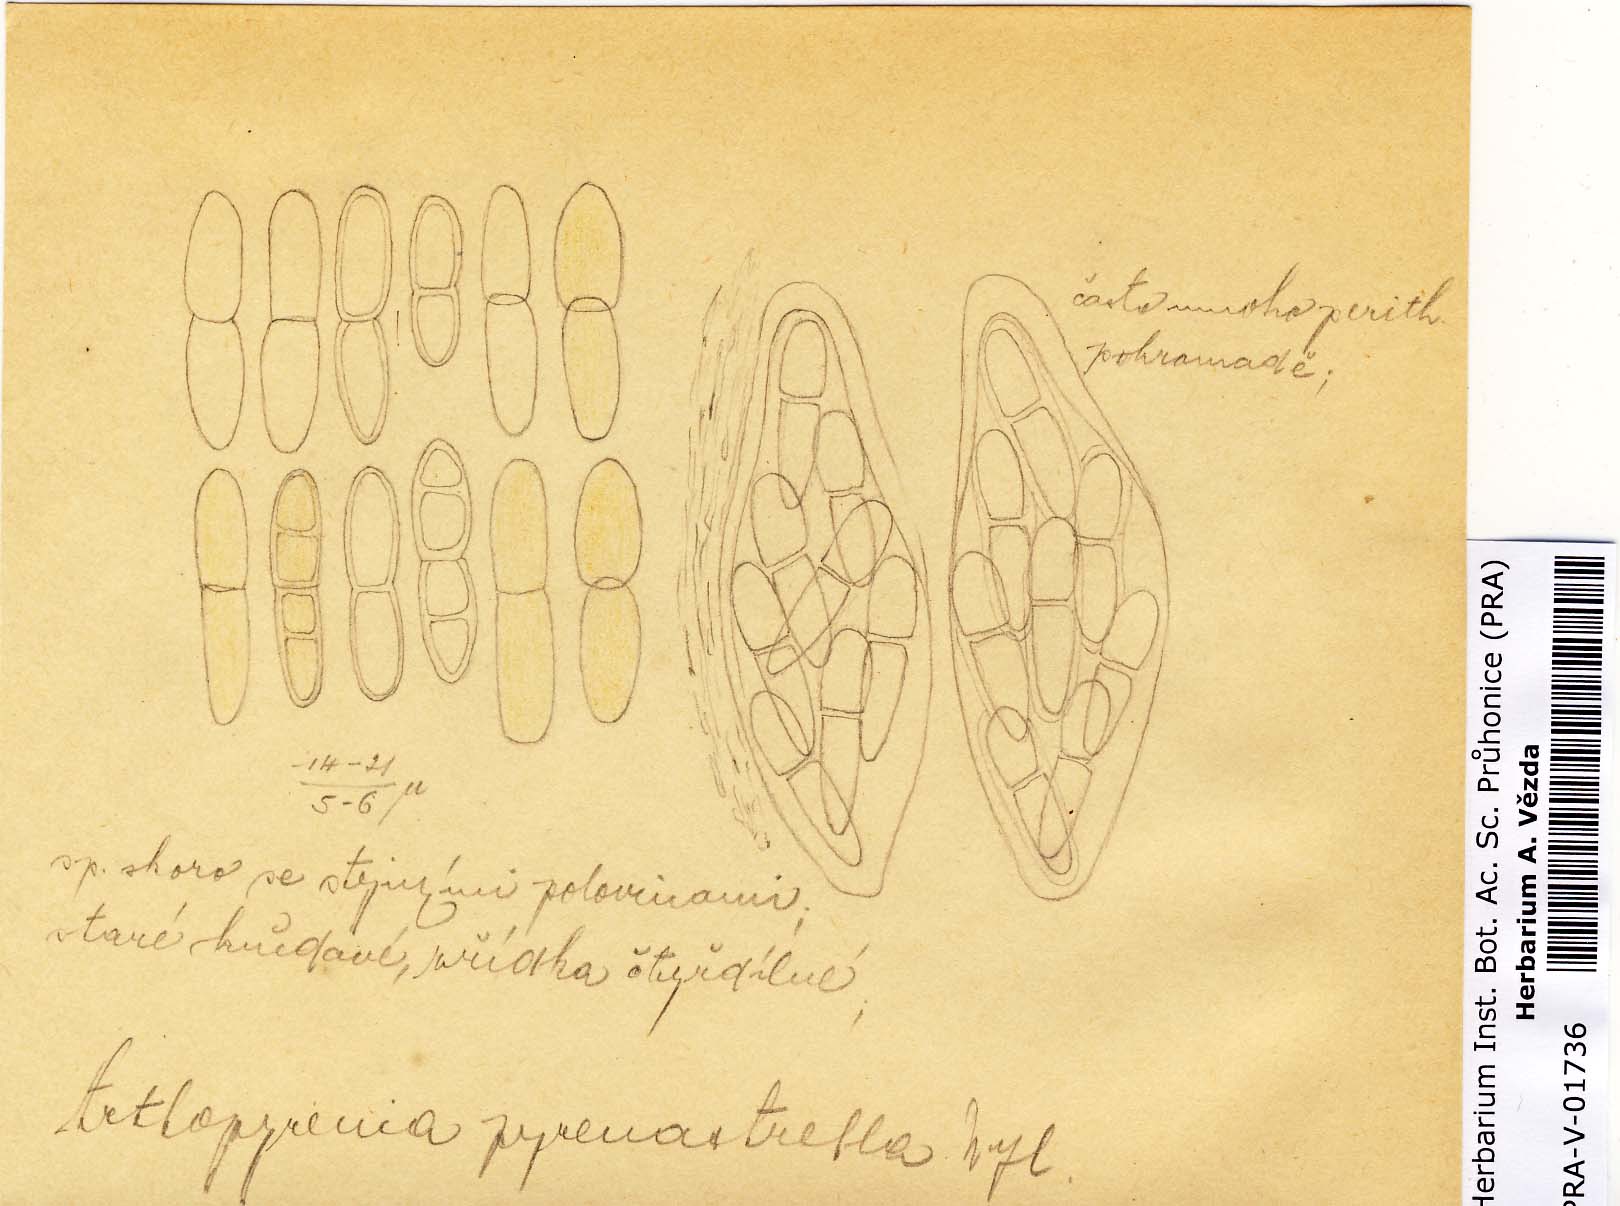 často mnoho perith.
pohromadě;
14-21
5-6 µ
sp. skoro se stejnými polovinami;
staré hnědavé, zřídka čtyřdílné;
Arthopyrenia pyrenastrella Nyl.
Herbarium Inst. Bot. Ac. Sc. Průhonice (PRA)
Herbarium A. Vězda
PRA-V-01736